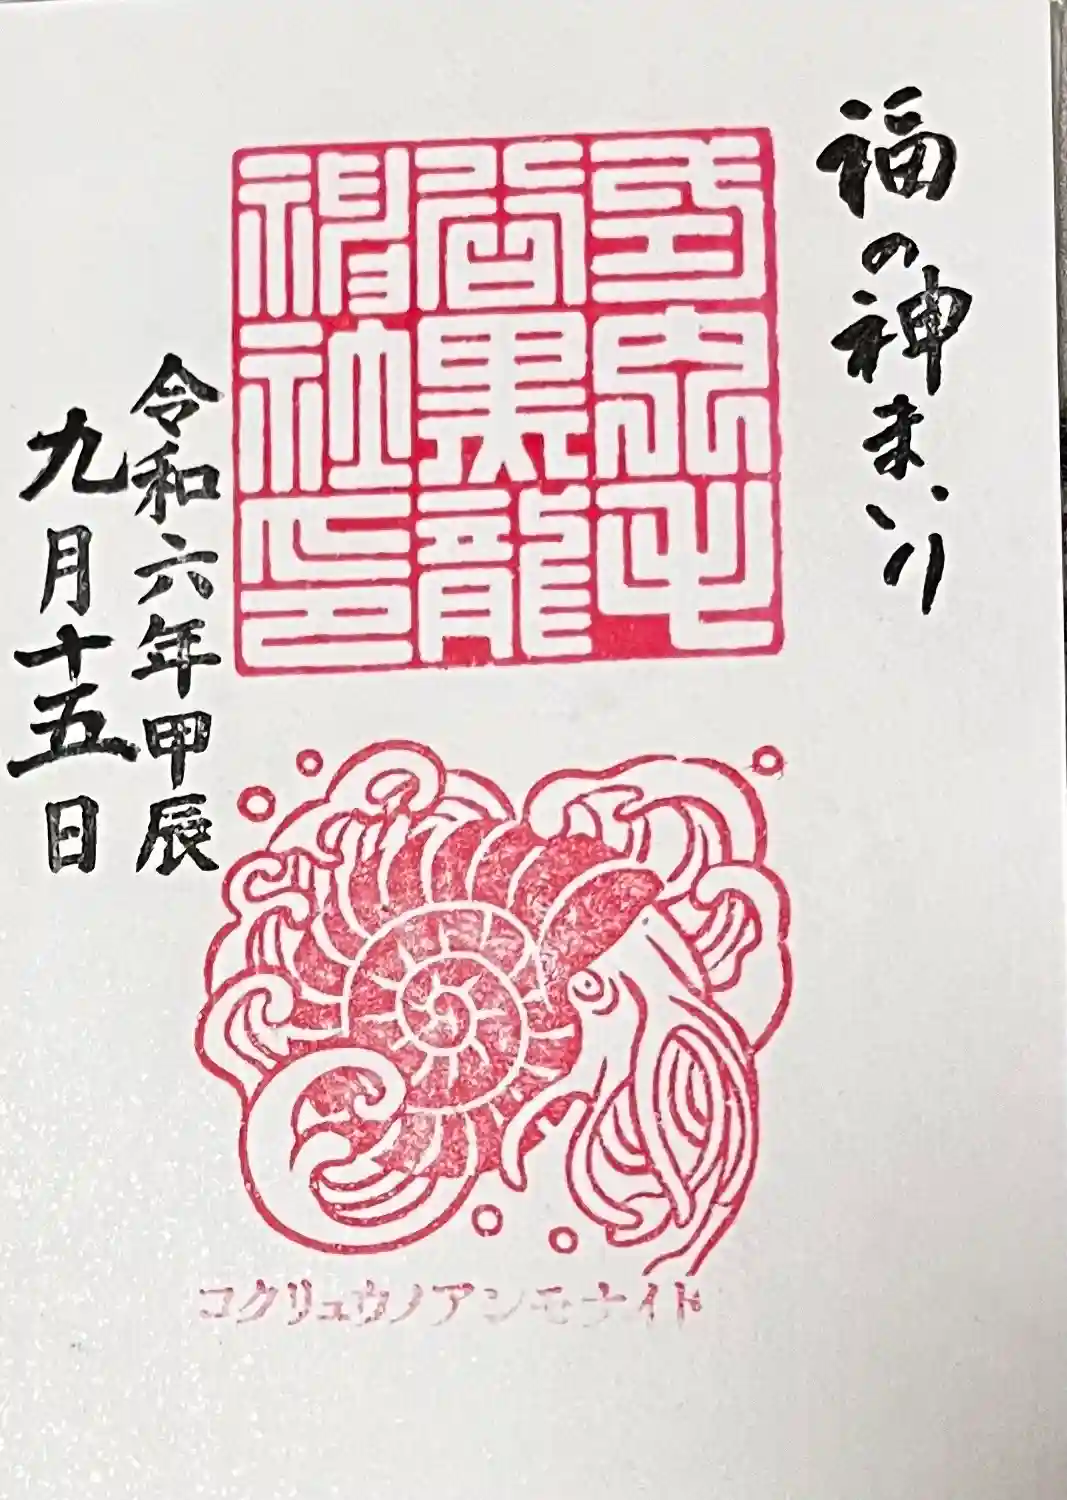 福の神まいり
式内毛
谷黒龍
神社印
令和六年甲辰
九月十五日
コクリュウノアンモナイト